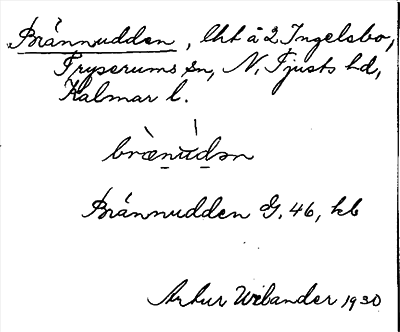 Brännudden, lht å 2 Ingelsbo,
Tryserums sn, N. Tjusts hd,
Kalmar l.
bræ̀nu̠d́ə̠n
Brännudden G. 46, kb
Artur Wilander 1930